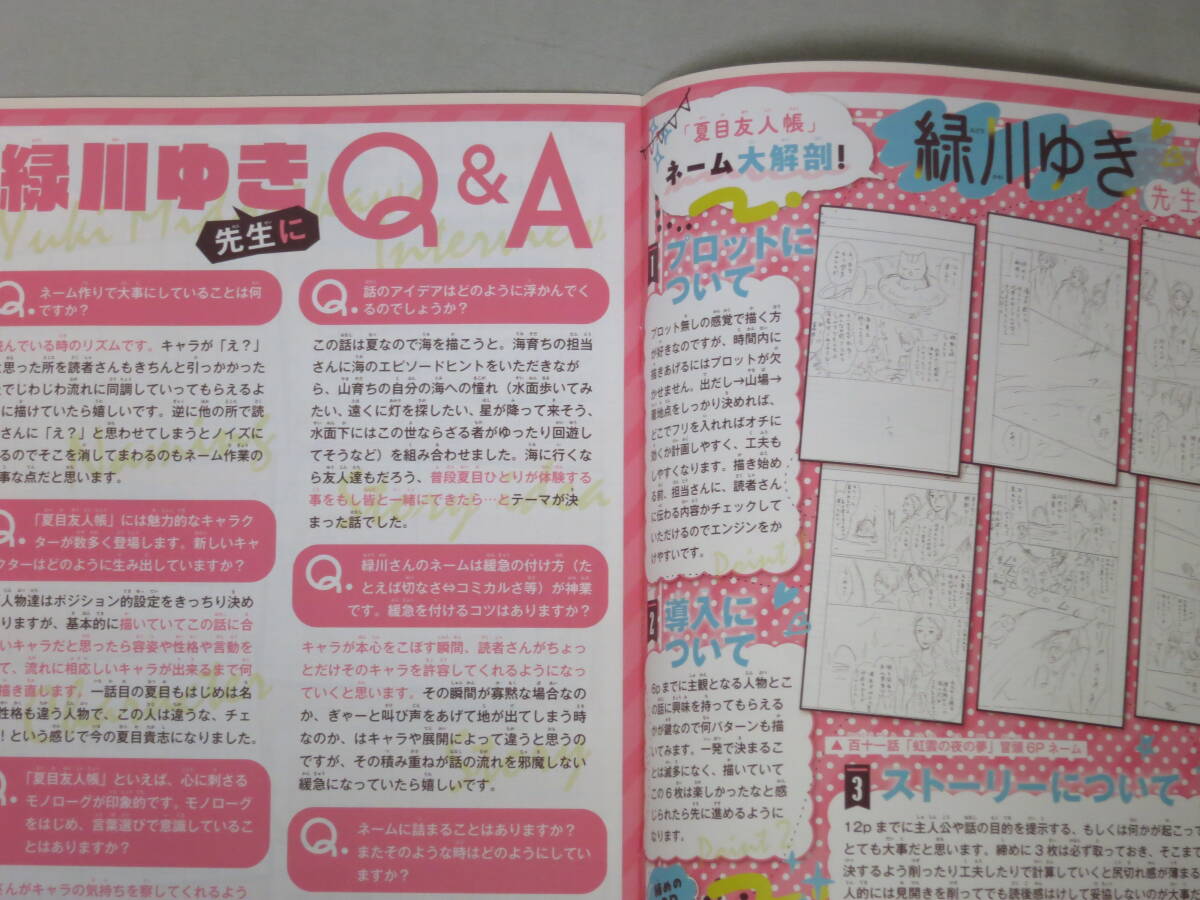 緑川ゆき
先生に
Q&A
Yuki Mid
Interview
Q. ネーム作りで大事にしていることは何
ですか？
んでいる時のリズムです。キャラが「え？」
思った所を読者さんもきちんと引っかかった
でじわじわ流れに同調していってもらえるよ
に描けていたら嬉しいです。逆に他の所で読
さんに「え？」と思わせてしまうとノイズに
るのでそこを消してまわるのもネーム作業の
事な点だと思います。
Q. 「夏目友人帳」には魅力的なキャラク
ターが数多く登場します。新しいキャ
クターはどのように生み出していますか？
人物達はポジション的設定をきっちり決め
りますが、基本的に描いていてこの話に合
いキャラだと思ったら容姿や性格や言動を
て、流れに相応しいキャラが出来るまで何
描き直します。一話目の夏目もはじめは名
性格も違う人物で、この人は違うな、チェ
！という感じで今の夏目貴志になりました。
Q. 「夏目友人帳」といえば、心に刺さる
モノローグが印象的です。モノローグ
をはじめ、言葉選びで意識しているこ
とはありますか？
さんがキャラの気持ちを察してくれるよう
Q. 話のアイデアはどのように浮かんでく
るのでしょうか？
この話は夏なので海を描こうと。海育ちの担当
さんに海のエピソードヒントをいただきなが
ら、山育ちの自分の海への憧れ（水面歩いてみ
たい、遠くに灯を探したい、星が降って来そう、
水面下にはこの世ならざる者がゆったり回遊し
てそうなど）を組み合わせました。海に行くな
ら友人達もだろう、普段夏目ひとりが体験する
事をもし皆と一緒にできたら…とテーマが決
まった話でした。
Q. 緑川さんのネームは緩急の付け方（た
とえば切なさ⇔コミカルさ等）が神業
です。緩急を付けるコツはありますか？
キャラが本心をこぼす瞬間、読者さんがちょっ
とだけそのキャラを許容してくれるようになっ
ていくと思います。その瞬間が寡黙な場合なの
か、ぎゃーと叫び声をあげて地が出てしまう時
なのか、はキャラや展開によって違うと思うの
ですが、その積み重ねが話の流れを邪魔しない
緩急になっていたら嬉しいです。
Q. ネームに詰まることはありますか？
またそのような時はどのようにしてい
ますか？
「夏目友人帳」
ネーム大解剖！
緑川ゆき
先生
1 プロットに
ついて
プロット無しの感覚で描く方
が好きなのですが、時間内に
描きあげるにはプロットが欠
かせません。出だし→山場→
着地点をしっかり決めれば、
どこでフリを入れればオチに
効くか計画しやすく、工夫も
しやすくなります。描き始め
る前、担当さんに、読者さん
に伝わる内容かチェックして
いただけるのでエンジンをか
けやすいです。
Point
2 導入に
ついて
6pまでに主観となる人物とこ
の話に興味を持ってもらえる
かが鍵なので何パターンも描
いてみます。一発で決まるこ
とは滅多になく、描いていて
この6枚は楽しかったなと感
じられたら先に進めるように
なります。
Point 2
▲ 百十一話「虹雲の夜の夢」冒頭6Pネーム
3 ストーリーについて
12pまでに主人公や話の目的を提示する、もしくは何かが起こって
とても大事だと思います。締めに3枚は必ず取っておき、そこまで
決するよう削ったり工夫したりで計算していくと尻切れ感が薄まる
人的には見開きを削ってでも読後感はけして妥協しないのが大事だ